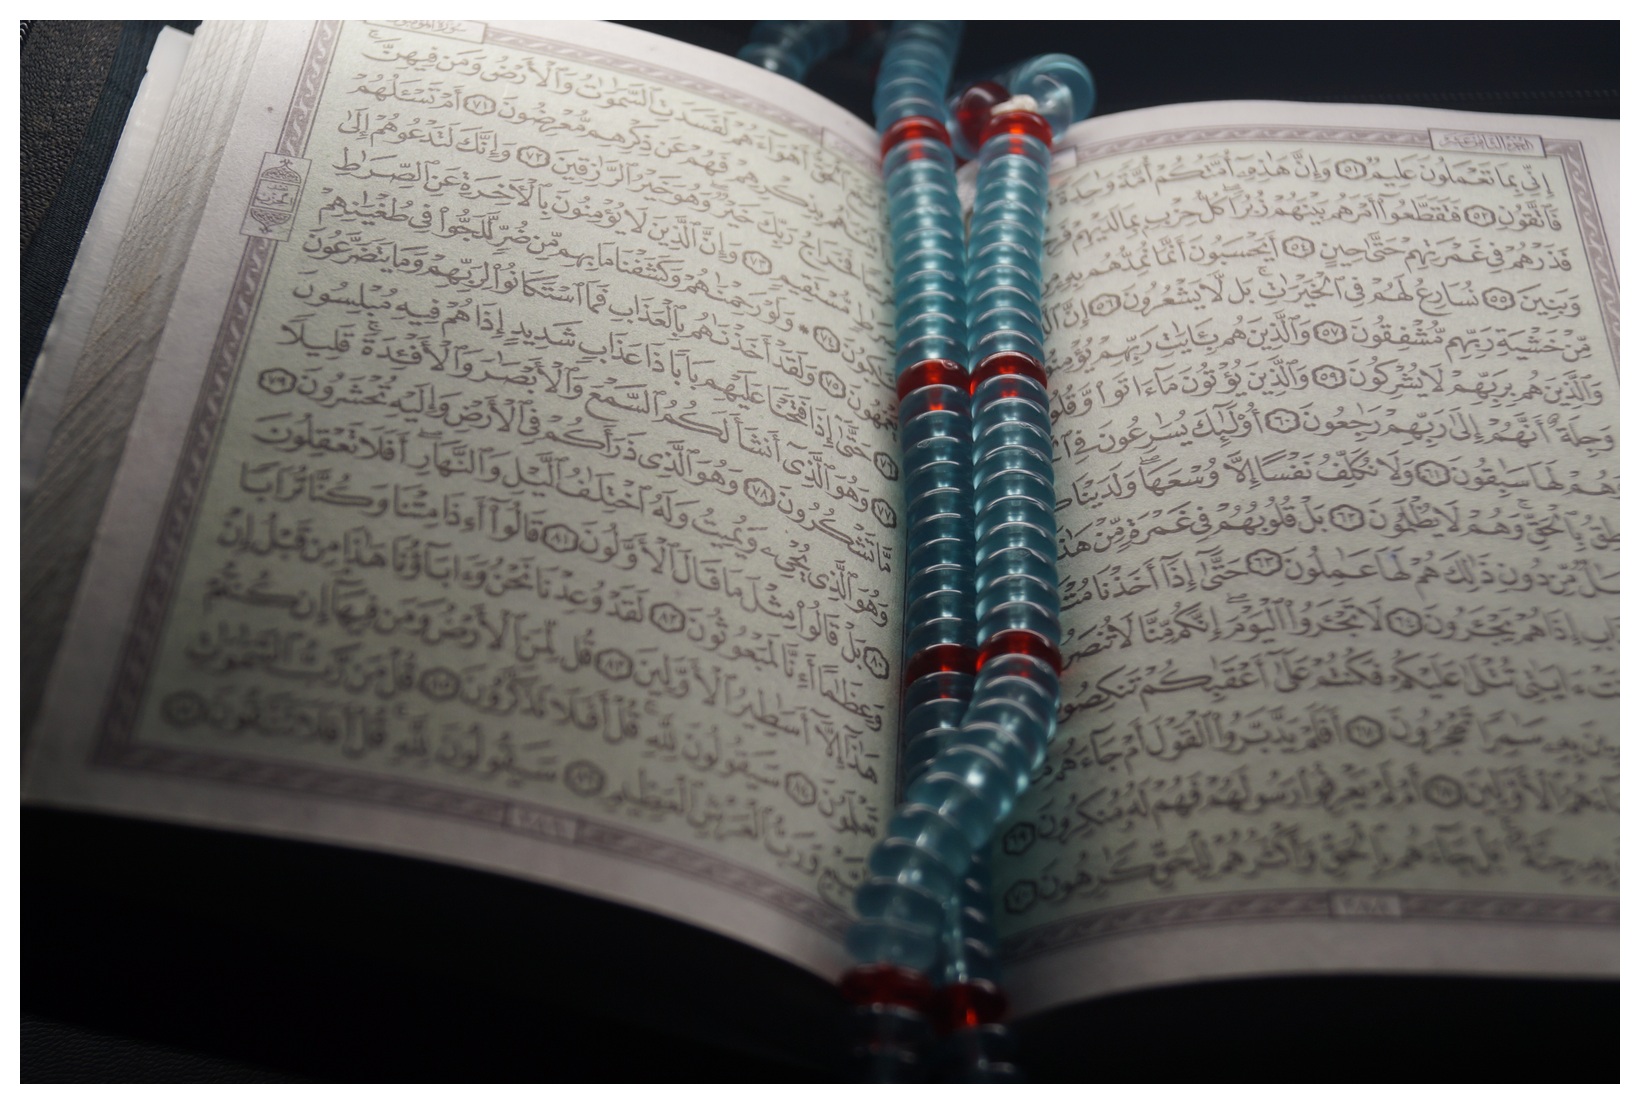 الجزء الثامن عشر
إِنِّي بِمَا تَعْمَلُونَ عَلِيمٌ ٥١ وَإِنَّ هَٰذِهِۦٓ أُمَّتُكُمْ أُمَّةً وَٰحِدَةً
فَٱتَّقُونِ ٥٢ فَتَقَطَّعُوٓا۟ أَمْرَهُم بَيْنَهُمْ زُبُرًا ۖ كُلُّ حِزْبٍۭ بِمَا لَدَيْهِمْ
فَذَرْهُمْ فِي غَمْرَتِهِمْ حَتَّىٰ حِينٍ ٥٤ أَيَحْسَبُونَ أَنَّمَا نُمِدُّهُم بِهِۦ
وَبَنِينَ ٥٥ نُسَارِعُ لَهُمْ فِي ٱلْخَيْرَٰتِ ۚ بَل لَّا يَشْعُرُونَ ٥٦ إِنَّ
مِّنْ خَشْيَةِ رَبِّهِم مُّشْفِقُونَ ٥٧ وَٱلَّذِينَ هُم بِـَٔايَٰتِ رَبِّهِمْ
وَٱلَّذِينَ هُم بِرَبِّهِمْ لَا يُشْرِكُونَ ٥٩ وَٱلَّذِينَ يُؤْتُونَ مَآ ءَاتَوا۟
وَجِلَةٌ أَنَّهُمْ إِلَىٰ رَبِّهِمْ رَٰجِعُونَ ٦٠ أُو۟لَٰٓئِكَ يُسَٰرِعُونَ فِي
وَهُمْ لَهَا سَٰبِقُونَ ٦١ وَلَا نُكَلِّفُ نَفْسًا إِلَّا وُسْعَهَا ۖ وَلَدَيْنَا
بِٱلْحَقِّ ۚ وَهُمْ لَا يُظْلَمُونَ ٦٢ بَلْ قُلُوبُهُمْ فِي غَمْرَةٍ مِّنْ
مِّن دُونِ ذَٰلِكَ هُمْ لَهَا عَٰمِلُونَ ٦٣ حَتَّىٰٓ إِذَآ أَخَذْنَا
إِذَا هُمْ يَجْـَٔرُونَ ٦٤ لَا تَجْـَٔرُوا۟ ٱلْيَوْمَ ۖ إِنَّكُم مِّنَّا لَا
ءَايَٰتِي تُتْلَىٰ عَلَيْكُمْ فَكُنتُمْ عَلَىٰٓ أَعْقَٰبِكُمْ تَنكِصُونَ
سَٰمِرًا تَهْجُرُونَ ٦٧ أَفَلَمْ يَدَّبَّرُوا۟ ٱلْقَوْلَ أَمْ جَآءَهُم
ٱلْأَوَّلِينَ ٦٨ أَمْ لَمْ يَعْرِفُوا۟ رَسُولَهُمْ فَهُمْ لَهُۥ مُنكِرُونَ ٦٩
بَلْ جَآءَهُم بِٱلْحَقِّ وَأَكْثَرُهُمْ لِلْحَقِّ كَٰرِهُونَ ٧٠
أَهْوَآءَهُمْ لَفَسَدَتِ ٱلسَّمَٰوَٰتُ وَٱلْأَرْضُ وَمَن فِيهِنَّ ۚ
بِذِكْرِهِمْ فَهُمْ عَن ذِكْرِهِم مُّعْرِضُونَ ٧١ أَمْ تَسْـَٔلُهُمْ
فَخَرَاجُ رَبِّكَ خَيْرٌ ۖ وَهُوَ خَيْرُ ٱلرَّٰزِقِينَ ٧٢ وَإِنَّكَ لَتَدْعُوهُمْ إِلَىٰ
مُّسْتَقِيمٍ ٧٣ وَإِنَّ ٱلَّذِينَ لَا يُؤْمِنُونَ بِٱلْءَاخِرَةِ عَنِ ٱلصِّرَٰطِ
لَنَٰكِبُونَ ٧٤ ۞ وَلَوْ رَحِمْنَٰهُمْ وَكَشَفْنَا مَا بِهِم مِّن ضُرٍّ لَّلَجُّوا۟ فِي طُغْيَٰنِهِمْ
يَعْمَهُونَ ٧٥ وَلَقَدْ أَخَذْنَٰهُم بِٱلْعَذَابِ فَمَا ٱسْتَكَانُوا۟ لِرَبِّهِمْ وَمَا يَتَضَرَّعُونَ
٧٦ حَتَّىٰٓ إِذَا فَتَحْنَا عَلَيْهِم بَابًا ذَا عَذَابٍ شَدِيدٍ إِذَا هُمْ فِيهِ مُبْلِسُونَ
٧٧ وَهُوَ ٱلَّذِيٓ أَنشَأَ لَكُمُ ٱلسَّمْعَ وَٱلْأَبْصَٰرَ وَٱلْأَفْـِٔدَةَ ۚ قَلِيلًا
مَّا تَشْكُرُونَ ٧٨ وَهُوَ ٱلَّذِي ذَرَأَكُمْ فِي ٱلْأَرْضِ وَإِلَيْهِ تُحْشَرُونَ ٧٩
وَهُوَ ٱلَّذِي يُحْيِۦ وَيُمِيتُ وَلَهُ ٱخْتِلَٰفُ ٱلَّيْلِ وَٱلنَّهَارِ ۚ أَفَلَا تَعْقِلُونَ
٨٠ بَلْ قَالُوا۟ مِثْلَ مَا قَالَ ٱلْأَوَّلُونَ ٨١ قَالُوٓا۟ أَءِذَا مِتْنَا وَكُنَّا تُرَابًا
وَعِظَٰمًا أَءِنَّا لَمَبْعُوثُونَ ٨٢ لَقَدْ وُعِدْنَا نَحْنُ وَءَابَآؤُنَا هَٰذَا مِن قَبْلُ إِنْ
هَٰذَآ إِلَّآ أَسَٰطِيرُ ٱلْأَوَّلِينَ ٨٣ قُل لِّمَنِ ٱلْأَرْضُ وَمَن فِيهَآ إِن كُنتُمْ
تَعْلَمُونَ ٨٤ سَيَقُولُونَ لِلَّهِ ۚ قُلْ أَفَلَا تَذَكَّرُونَ ٨٥ قُلْ مَن رَّبُّ ٱلسَّمَٰوَٰتِ
ٱلسَّبْعِ وَرَبُّ ٱلْعَرْشِ ٱلْعَظِيمِ ٨٦ سَيَقُولُونَ لِلَّهِ ۚ قُلْ أَفَلَا تَتَّقُونَ ٨٧